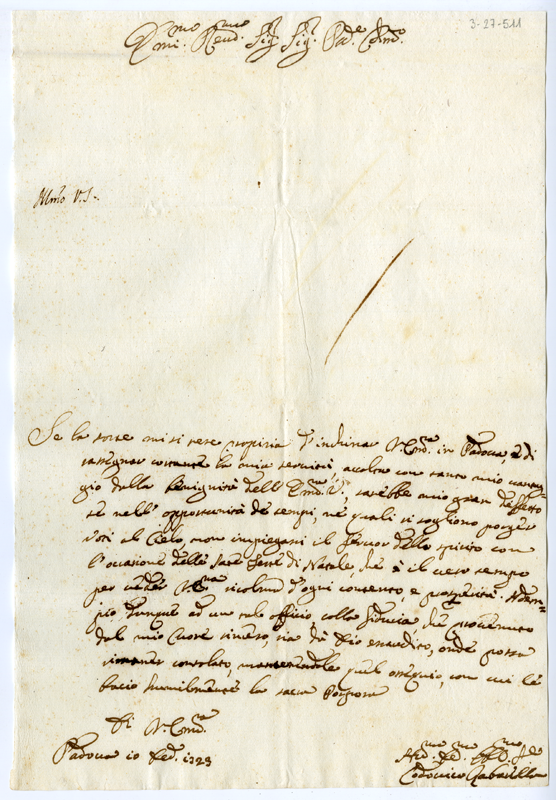 3-27-511
Em.mo Reud.mo Sig.r Sig.r Pad.e Col.mo
Ill.mo V. S.
Se la sorte mi si rese propizia d'inchinar V. Em.a in Padova, e di
rassegnar costante la mia servitù, accolta con tanto mio vantag-
gio dalla Benignità dell' Em.a V., sarebbe mio gran difetto
se nell' opportunità de tempi, ne quali si sogliono porger
voti al Cielo, non impiegassi il fervor dello spirito con
l'occasione delle Sante Feste di Natale, che è il vero tempo
per veder V. Em.a ricolma d'ogni contento, e prosperità. Adem-
pio dunque ad un tale officio, colla fiducia che provenuto
dal mio Cuore sincero, sia da Dio esaudito, onde possa
rimaner consolato, mantenendole quel ossequio, con cui le
bacio humilmente la sacra Porpora
Di V. Em.a
Padova 10 Xbre 1723
Lodovico